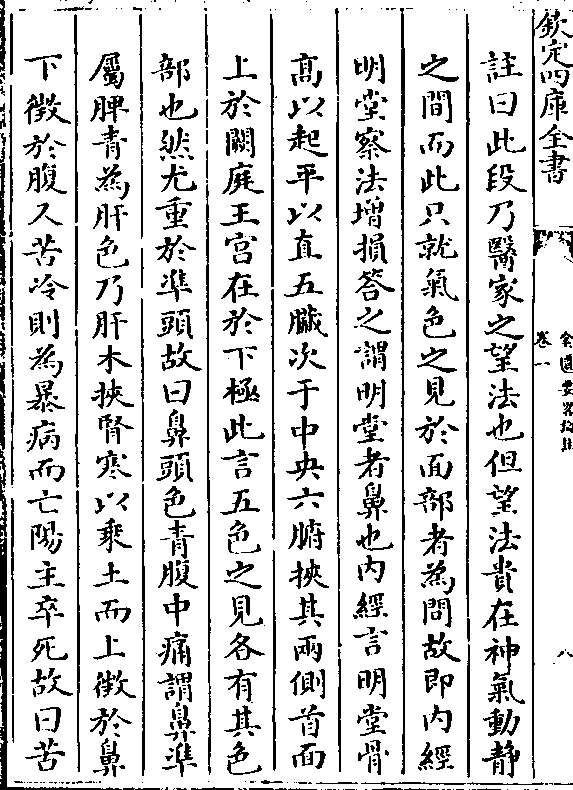 欽定四庫全書
卷一
金匱要畧論註
八
註曰此段乃醫家之望法也但望法貴在神氣動靜
之間而此只就氣色之見於面部者為問故即內經
明堂察法增損答之謂明堂者鼻也內經言明堂骨
髙以起平以直五臟次于中央六腑挾其兩側首面
上於闕庭王宫在於下極此言五色之見各有其色
部也然尤重於凖頭故曰鼻頭色青腹中痛謂鼻凖
屬脾青為肝色乃肝木挾腎寒以乘土而上徴於鼻
下徴於腹又苦冷則為暴病而亡陽主卒死故曰苦